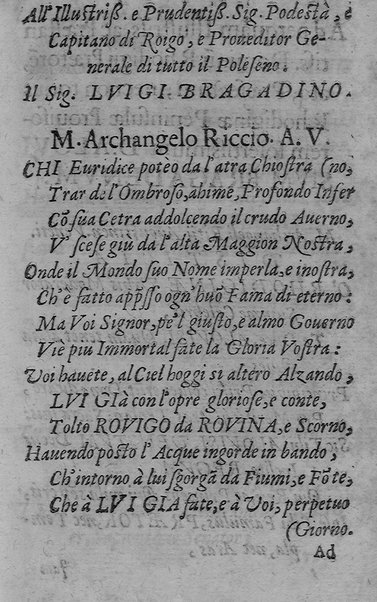 All'Illustriß. e Prudentiß. Sig. Podestà, e
Capitano di Roigo, e Proueditor Ge-
nerale di tutto il Polesene.
Il Sig. LVIGI BRAGADINO.
M. Archangelo Riccio. A. V.
CHI Euridice poteo da l'atra Chiostra (no,
Trar de l'Ombroso, ahime, Profondo Infer
Cō sua Cetra addolcendo il crudo Auerno,
V' scese giù da l'alta Maggion Nostra,
Onde il Mondo suo Nome imperla, e inostra,
Ch'è fatto app̄sso ogn'huō Fama di eterno:
Ma Voi Signor, pe'l giusto, e almo Gouerno
Viè più Immortal fate la Gloria Vostra:
Voi hauete, al Ciel hoggi sì altero Alzando,
LVI GIà con l'opre gloriose, e conte,
Tolto ROVIGO da ROVINA, e Scorno,
Hauendo posto l'Acque ingorde in bando,
Ch'intorno à lui sgorgā da Fiumi, e Fōte,
Che à LVI GIA fate, e à Voi, perpetuo
(Giorno.
Ad